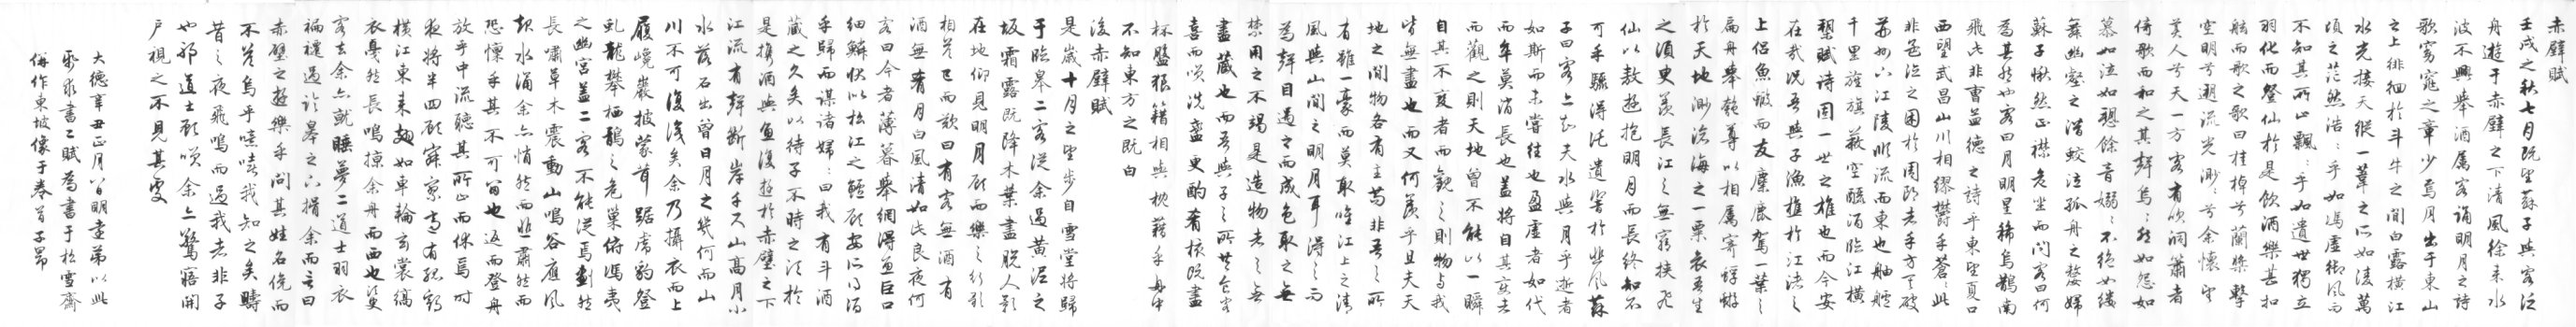 赤壁賦
壬戌之秋七月既望蘇子與客泛
舟遊于赤壁之下清風徐來水
波不興舉酒屬客誦明月之詩
歌窈窕之章少焉月出于東山
之上徘徊於斗牛之間白露橫江
水光接天縱一葦之所如凌萬
頃之茫然浩〻乎如馮虛御風而
不知其所止飄〻乎如遺世獨立
羽化而登仙於是飲酒樂甚扣
舷而歌之歌曰桂棹兮蘭槳擊
空明兮遡流光渺〻兮余懷望
美人兮天一方客有吹洞簫者
倚歌而和之其聲烏〻然如怨如
慕如泣如愬餘音嫋〻不絕如縷
舞幽壑之潛蛟泣孤舟之嫠婦
蘇子愀然正襟危坐而問客曰何
為其然也客曰月明星稀烏鵲南
飛此非曹孟德之詩乎東望夏口
西望武昌山川相繆鬱乎蒼〻此
非孟德之困於周郎者乎方其破
荊州下江陵順流而東也舳艫
千里旌旗蔽空釃酒臨江橫
槊賦詩固一世之雄也而今安
在哉況吾與子漁樵於江渚之
上侶魚鰕而友麋鹿駕一葉之
扁舟舉匏尊以相屬寄蜉蝣
於天地渺滄海之一粟哀吾生
之須臾羨長江之無窮挾飛
仙以敖遊抱明月而長終知不
可乎驟得託遺響於悲風蘇
子曰客亦知夫水與月乎逝者
如斯而未嘗往也盈虛者如代
而卒莫消長也蓋將自其變者
而觀之則天地曾不能以一瞬
自其不變者而觀之則物與我
皆無盡也而又何羨乎且夫天
地之間物各有主苟非吾之所
有雖一毫而莫取惟江上之清
風與山間之明月耳得之而
為聲目遇之而成色取之無
禁用之不竭是造物者之無
盡藏也而吾與子之所共食客
喜而笑洗盞更酌肴核既盡
杯盤狼籍相與枕藉乎舟中
不知東方之既白
後赤壁賦
是歲十月之望步自雪堂將歸
于臨皋二客從余過黃泥之
坂霜露既降木葉盡脫人影
在地仰見明月顧而樂之行歌
相答已而歎曰有客無酒有
酒無肴月白風清如此良夜何
客曰今者薄暮舉網得魚巨口
細鱗狀似松江之鱸顧安所得酒
乎歸而謀諸婦〻曰我有斗酒
藏之久矣以待子不時之須於
是攜酒與魚復遊於赤壁之下
江流有聲斷岸千尺山高月小
水落石出曾日月之幾何而山
川不可復識矣余乃攝衣而上
履巉巖披蒙茸踞虎豹登
虯龍攀栖鶻之危巢俯馮夷
之幽宮蓋二客不能從焉劃然
長嘯草木震動山鳴谷應風
起水涌余亦悄然而悲肅然而
恐懍乎其不可留也返而登舟
放乎中流聽其所止而休焉時
夜將半四顧寂寥適有孤鶴
橫江東來翅如車輪玄裳縞
衣戛然長鳴掠余舟而西也須臾
客去余亦就睡夢二道士羽衣
褊襳過臨皋之下揖余而言曰
赤壁之遊樂乎問其姓名俛而
不答烏乎噫嘻我知之矣疇
昔之夜飛鳴而過我者非子
也邪道士顧笑余亦驚寤開
戶視之不見其處
大德辛丑正月八日明遠弟以此
紙求書二賦為書于松雪齋
併作東坡像于卷首子昂